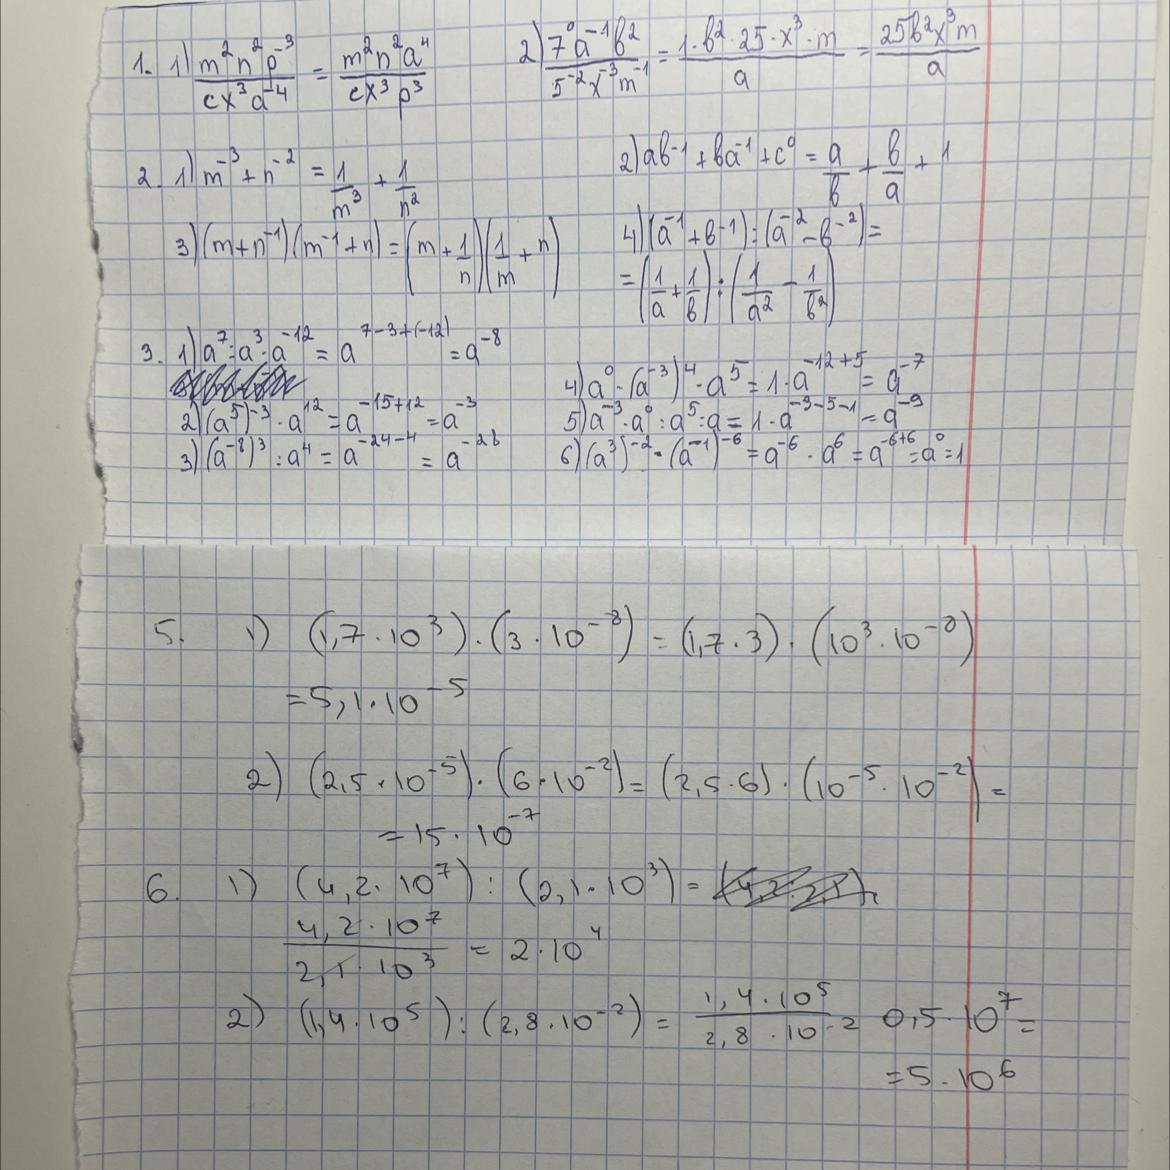 1. 1) m²n²p⁻³/cx³a⁻⁴ = m²n²a⁴/cx³p³
2) 7⁰a⁻¹b²/5⁻²x⁻³m⁻¹ = 1·b²·25·x³·m/a = 25b²x³m/a
2. 1) m⁻³+n⁻² = 1/m³ + 1/n²
2) ab⁻¹+ba⁻¹+c⁰ = a/b + b/a + 1
3) (m+n⁻¹)·(m⁻¹+n) = (m + 1/n)(1/m + n)
4) (a⁻¹+b⁻¹):(a⁻²-b⁻²)=
= (1/a + 1/b) : (1/a² - 1/b²)
3. 1) a⁷:a³·a⁻¹² = a⁷⁻³⁺⁽⁻¹²⁾ = a⁻⁸
2) (a⁵)⁻³·a¹² = a⁻¹⁵⁺¹² = a⁻³
3) (a⁻⁸)³:a⁴ = a⁻²⁴⁻⁴ = a⁻²⁸
4) a⁰·(a⁻³)⁴·a⁵ = 1·a⁻¹²⁺⁵ = a⁻⁷
5) a⁻³·a⁰:a⁵:a = 1·a⁻³⁻⁵⁻¹ = a⁻⁹
6) (a³)⁻²·(a⁻¹)⁻⁶ = a⁻⁶·a⁶ = a⁻⁶⁺⁶ = a⁰ = 1
5. 1) (1,7·10³)·(3·10⁻⁸) = (1,7·3)·(10³·10⁻⁸)
= 5,1·10⁻⁵
2) (2,5·10⁻⁵)·(6·10⁻²) = (2,5·6)·(10⁻⁵·10⁻²) =
= 15·10⁻⁷
6. 1) (4,2·10⁷):(2,1·10³) =
4,2·10⁷/2,1·10³ = 2·10⁴
2) (1,4·10⁵):(2,8·10⁻²) = 1,4·10⁵/2,8·10⁻² 0,5·10⁷ =
= 5·10⁶